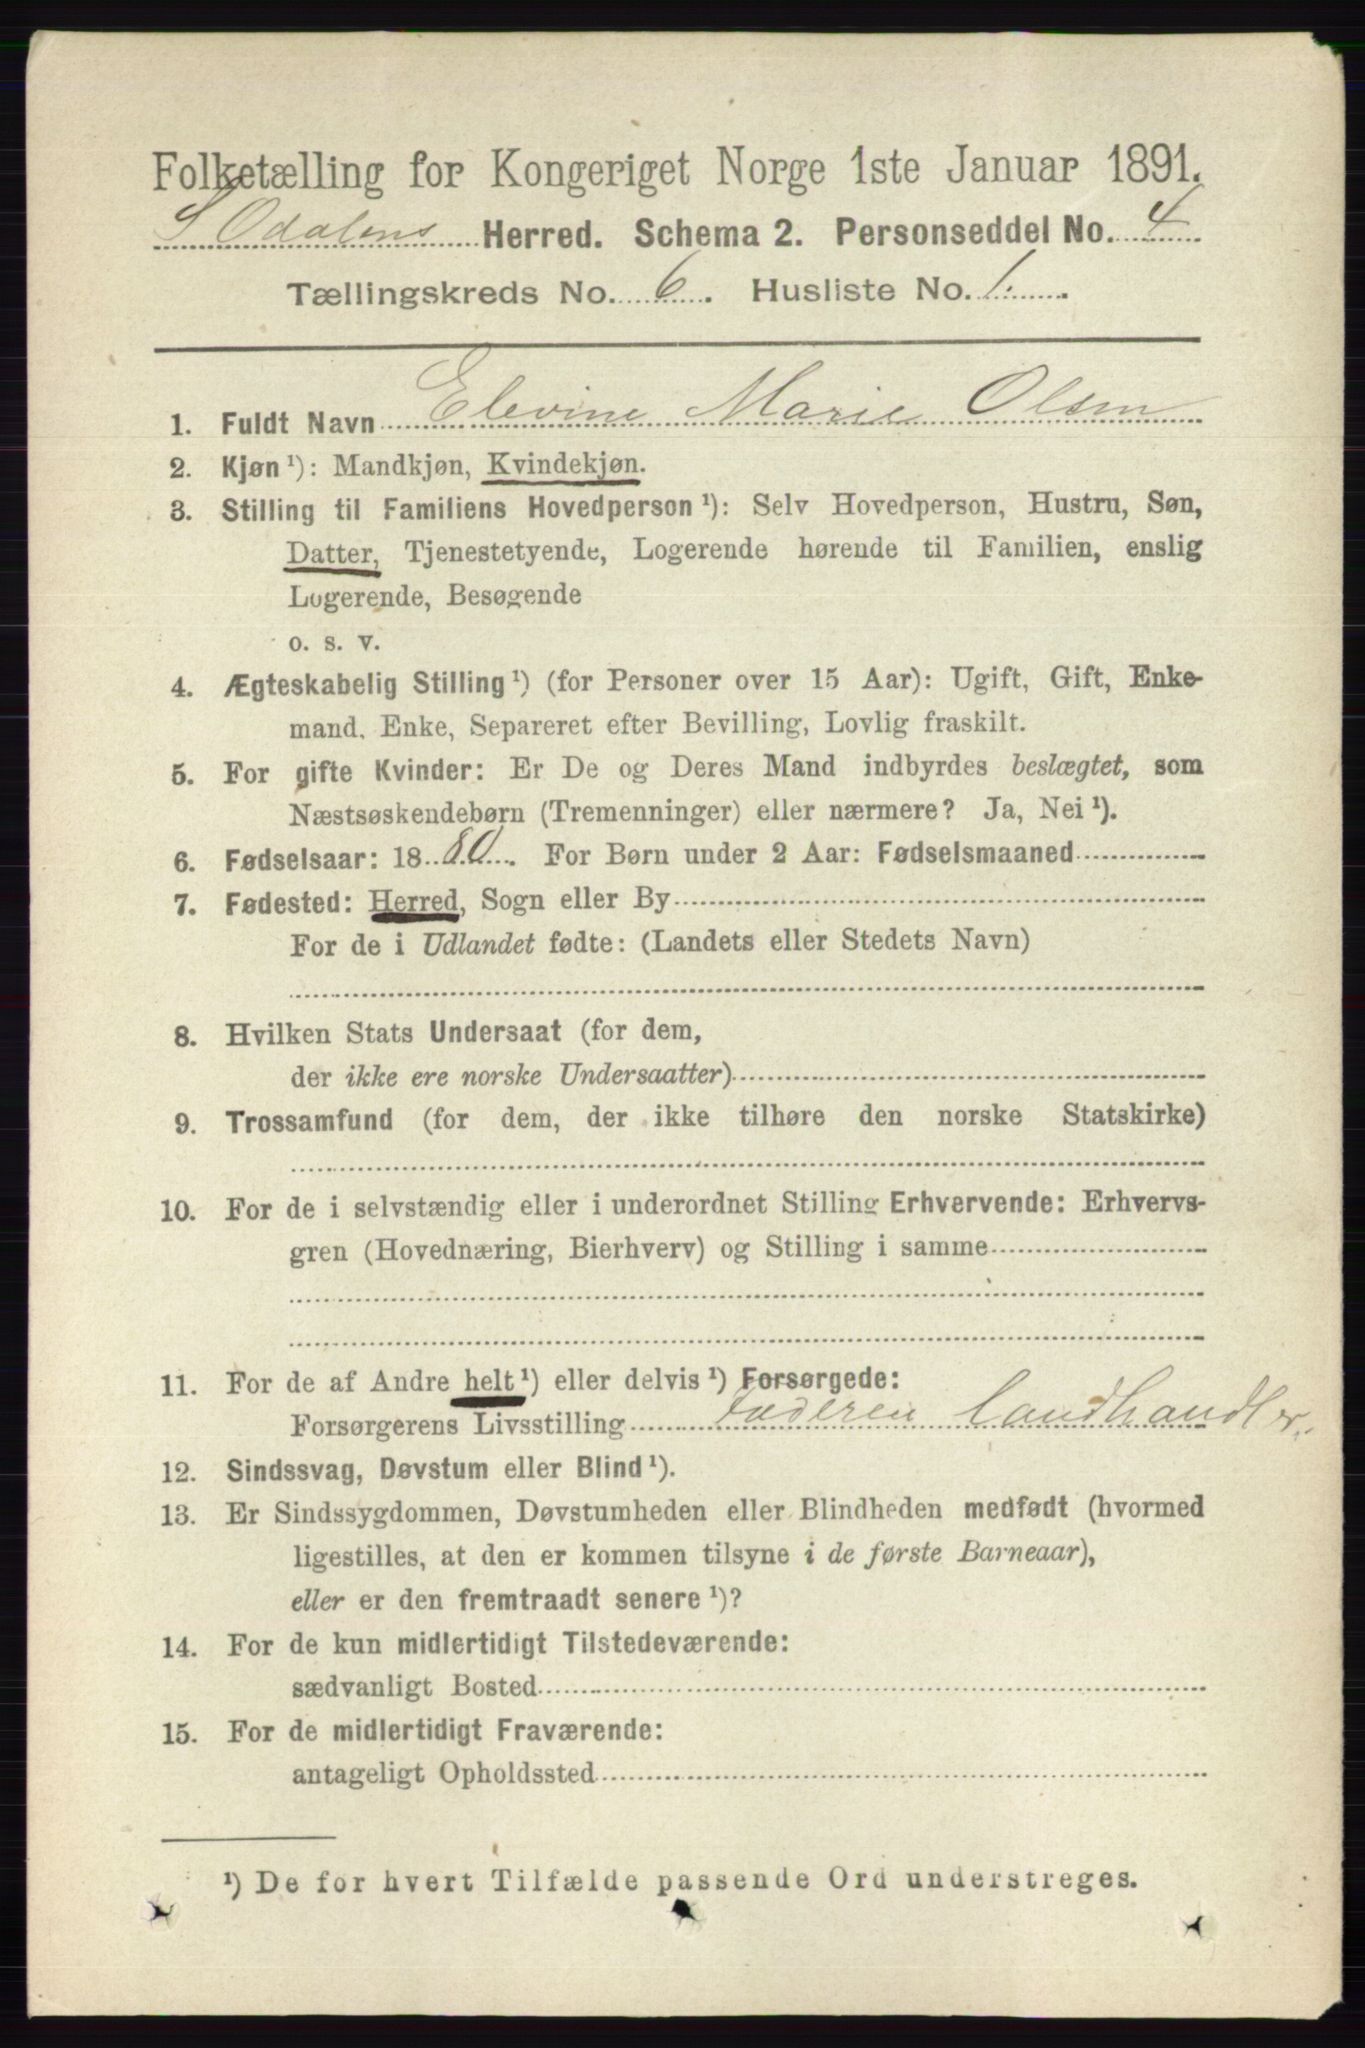 Folketælling for Kongeriget Norge 1ste Januar 1891.
S Odalens Herred. Schema 2. Personseddel No. 4
Tællingskreds No. 6. Husliste No. 1.
1. Fuldt Navn Elevine Marie Olsen
2. Kjøn ¹): Mandkjøn, Kvindekjøn.
3. Stilling til Familiens Hovedperson ¹): Selv Hovedperson, Hustru, Søn,
Datter, Tjenestetyende, Logerende hørende til Familien, enslig
Logerende, Besøgende
o. s. v.
4. Ægteskabelig Stilling ¹) (for Personer over 15 Aar): Ugift, Gift, Enke-
mand, Enke, Separeret efter Bevilling, Lovlig fraskilt.
5. For gifte Kvinder: Er De og Deres Mand indbyrdes beslægtet, som
Næstsøskendebørn (Tremenninger) eller nærmere? Ja, Nei ¹).
6. Fødselsaar: 1880. For Børn under 2 Aar: Fødselsmaaned
7. Fødested: Herred, Sogn eller By
For de i Udlandet fødte: (Landets eller Stedets Navn)
8. Hvilken Stats Undersaat (for dem,
der ikke ere norske Undersaatter)
9. Trossamfund (for dem, der ikke tilhøre den norske Statskirke)
10. For de i selvstændig eller i underordnet Stilling Erhvervende: Erhvervs-
gren (Hovednæring, Bierhverv) og Stilling i samme
11. For de af Andre helt ¹) eller delvis ¹) Forsørgede:
Forsørgerens Livsstilling Faderen Landhandler.
12. Sindssvag, Døvstum eller Blind ¹).
13. Er Sindssygdommen, Døvstumheden eller Blindheden medfødt (hvormed
ligestilles, at den er kommen tilsyne i de første Barneaar),
eller er den fremtraadt senere ¹)?
14. For de kun midlertidigt Tilstedeværende:
sædvanligt Bosted
15. For de midlertidigt Fraværende:
antageligt Opholdssted
¹) De for hvert Tilfælde passende Ord understreges.